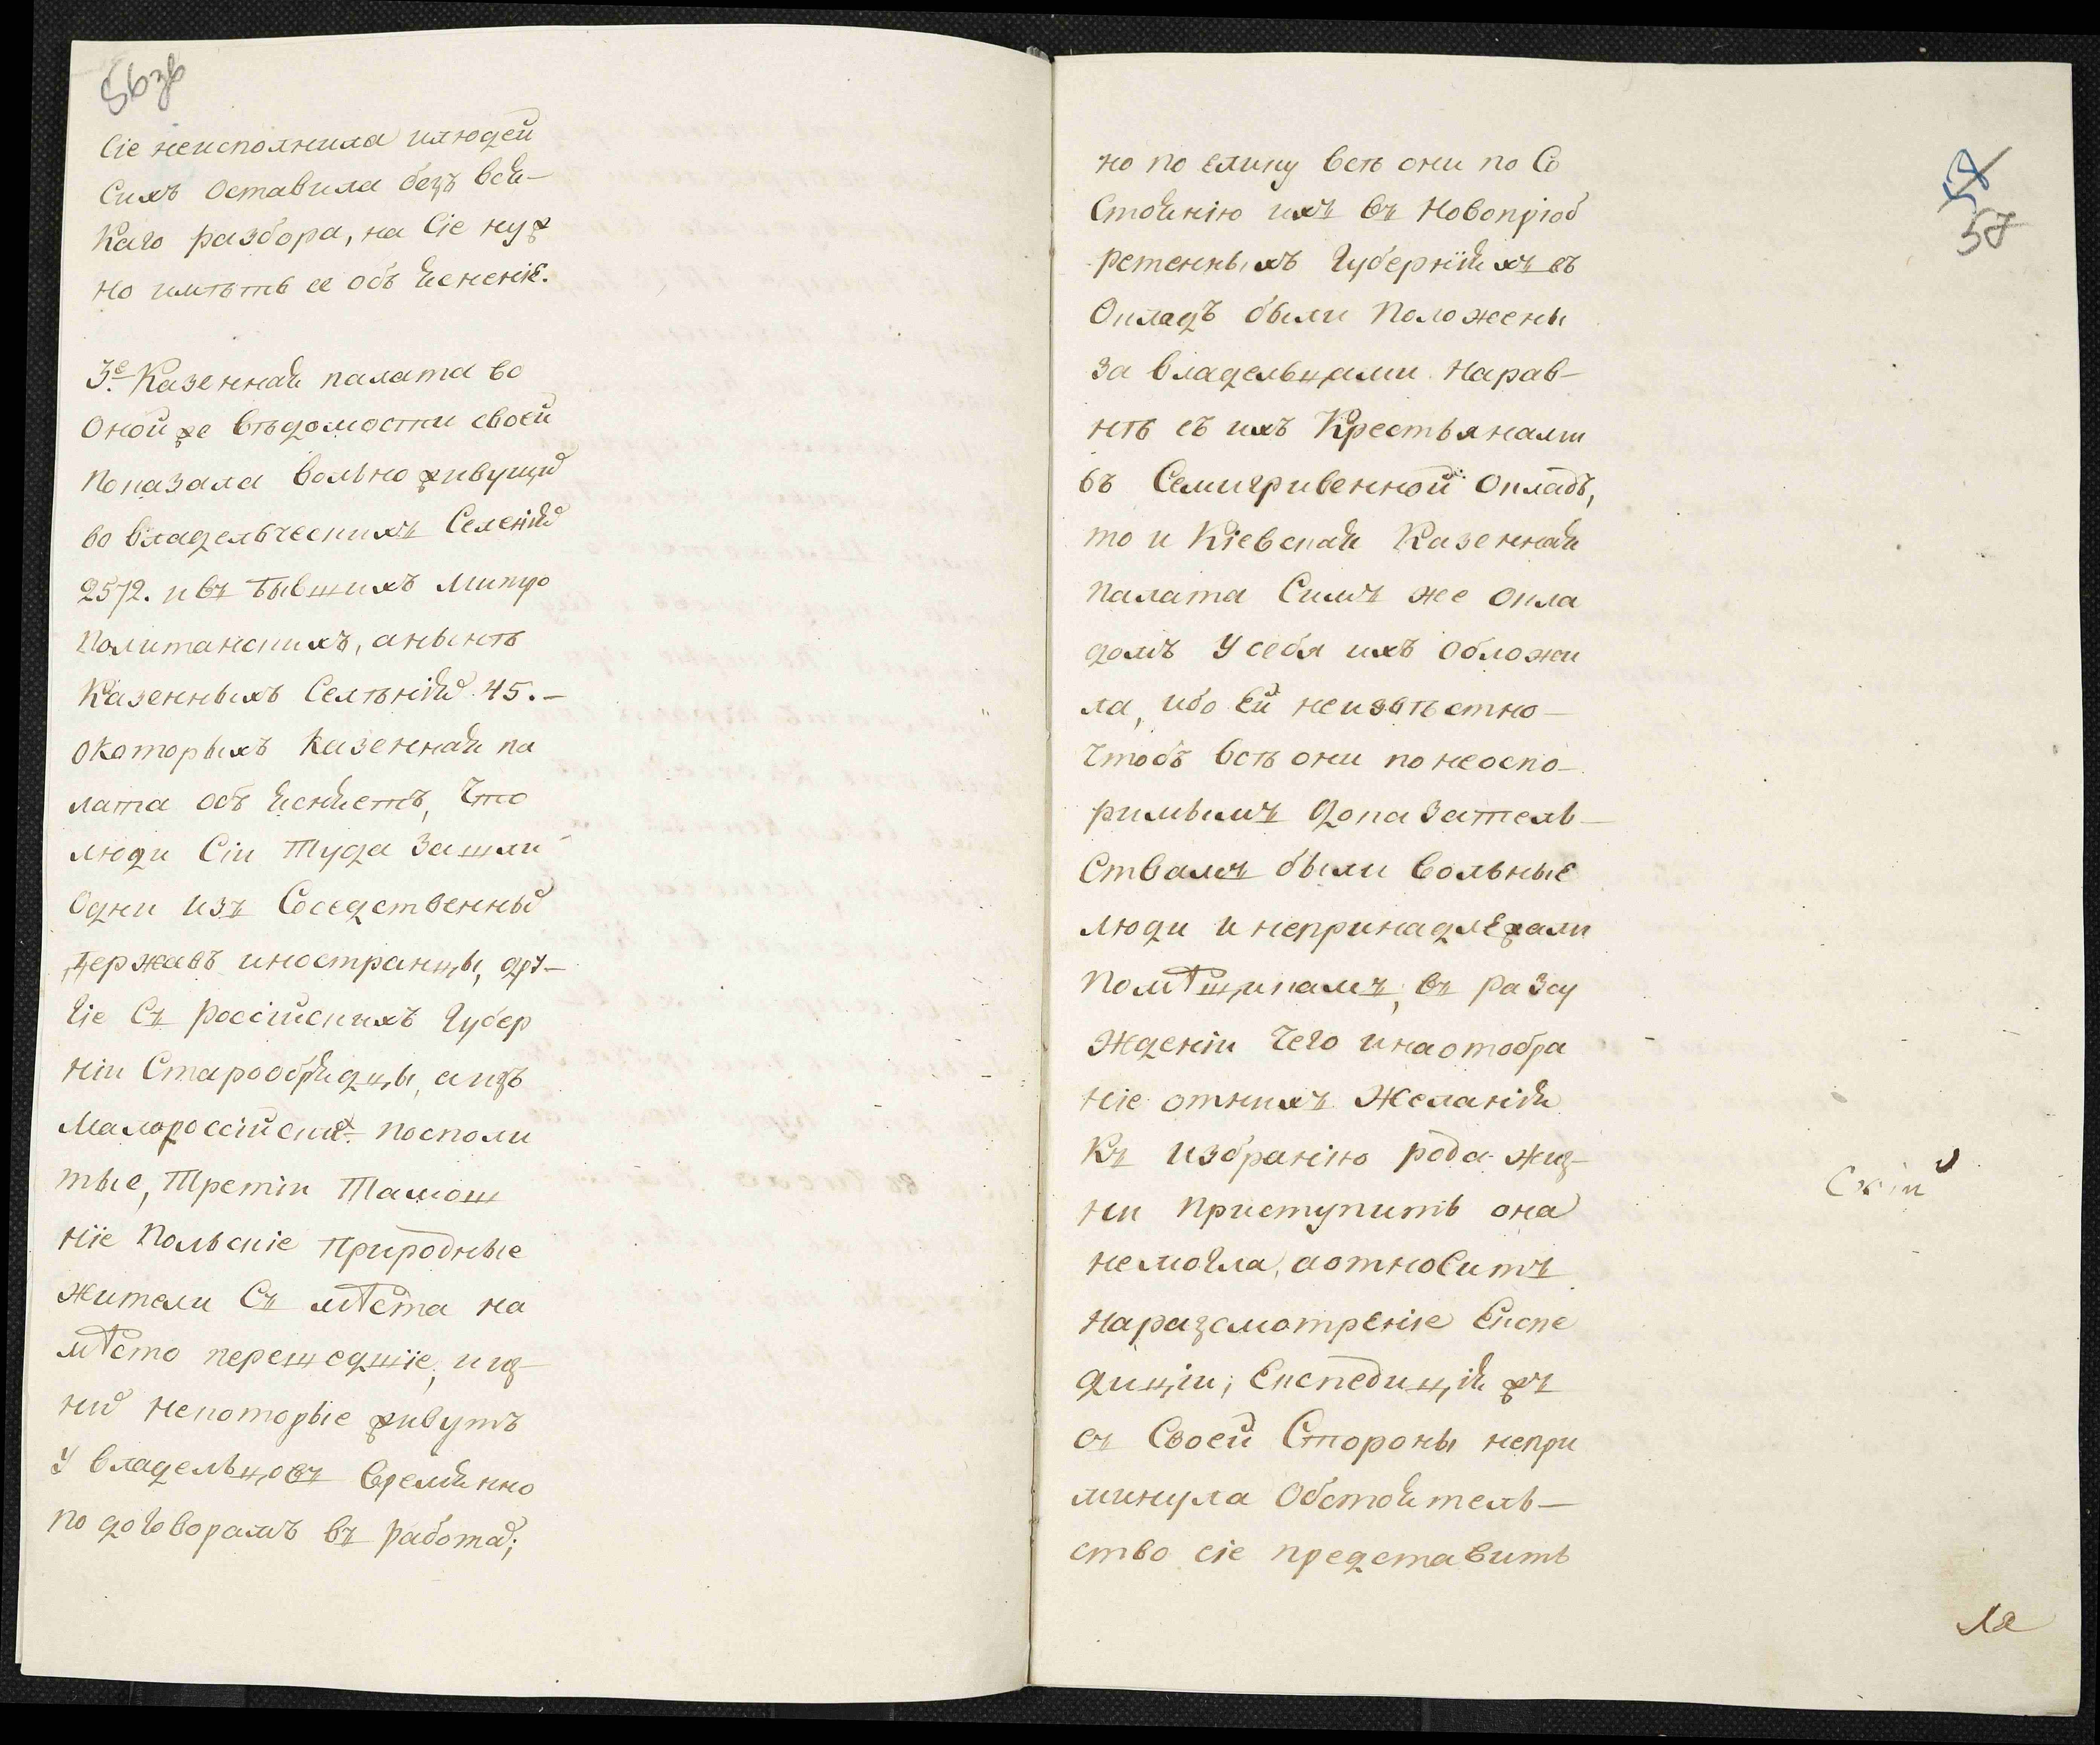 56 зв
Сіе неисполнила илюдей
Сихъ Оставила безъ вся-
Каго разбора, на Сіе нуж
но имѣть ее объ ясненіе.
3е Казенная палата во
Оной же вѣдомости своей
показала вольно живущих
во владельческихъ Селеніях
2572. и въ бывшихъ митро
политанскихъ, а нынѣ
Казенныхъ Селѣніях 45.-
о которыхъ казенная па
лата объ ясняетъ, Что
люди Сіи туда Зашли
Одни изъ Соседственных
державъ иностранцы, дру-
гіе Съ россійскихъ Губер
ніи Старообрядцы, а изъ
Малороссійских посполи
тые, Третіи Тамош
ніе польскіе природные
жители Съ мѣста на
мѣсто перешедшіе, и из-
них некоторые живутъ
У владельцовъ времянно
по договорамъ въ работах;
58
57
но по елику всѣ они по Со
Стоянію ихъ въ Новопріоб
ретенныхъ Губерніяхъ въ
Окладъ были Положены
За владельцами Нарав-
нѣ съ ихъ Крестьянами
въ Семигривенной Окладъ,
то и Кіевская Казенная
палата Симъ же окла
домъ У себя ихъ Обложи
ла, ибо Ей неизвѣстно-
Чтобъ всѣ они по неоспо-
римымъ доказатель-
Ствамъ были вольные
люди и непринадлежали
помѣщикамъ, въ разсу
Жденіи Чего и на отобра
ніе отнихъ Желанія
Къ избранію рода жиз-
ни приступить она
не могла, а относитъ
на разсмотреніе Експе
диціи; Експедиція жъ
съ Своей Стороны непри
минула Обстоятель-
ство сіе представить
ла